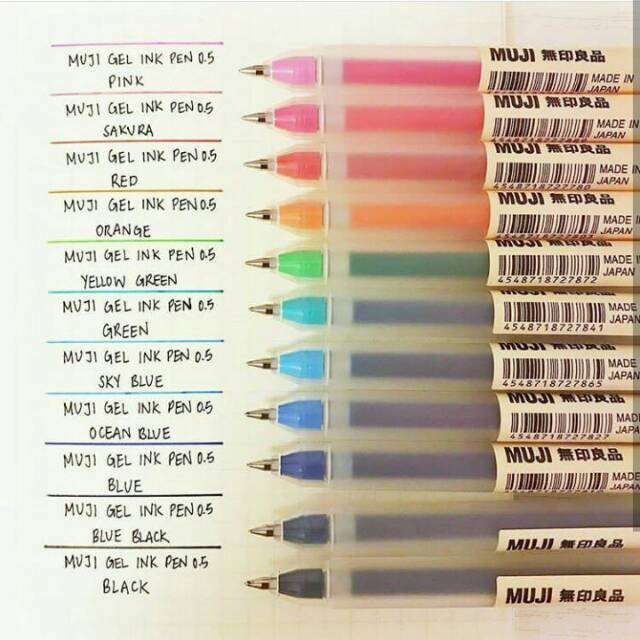 MUJI GEL INK PEN 0.5
PINK
MUJI GEL INK PEN 0.5
SAKURA
MUJI GEL INK PEN 0.5
RED
MUJI GEL INK PEN 0.5
ORANGE
MUJI GEL INK PEN 0.5
YELLOW GREEN
MUJI GEL INK PEN 0.5
GREEN
MUJI GEL INK PEN 0.5
SKY BLUE
MUJI GEL INK PEN 0.5
OCEAN BLUE
MUJI GEL INK PEN 0.5
BLUE
MUJI GEL INK PEN 0.5
BLUE BLACK
MUJI GEL INK PEN 0.5
BLACK
MUJI 無印良品
MADE IN
JAPAN
MUJI 無印良品
MADE IN
JAPAN
MUJI 無印良品
MADE IN
JAPAN
4548718727780
MUJI 無印良品
MADE IN
JAPAN
MUJI 無印良品
MADE
JAPAN
4548718727872
MADE
JAPAN
4548718727841
MADE
JAPAN
4548718727865
MUJI 無印良品
MADE
JAPAN
4548718727827
MUJI 無印良品
MADE
JAPAN
MUJI 無印良品
MUJI 無印良品